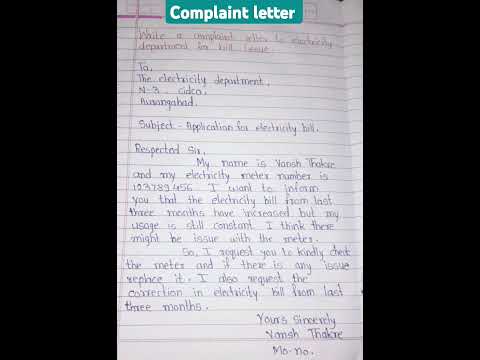 Complaint letter
Write a complaint letter to electricity
department for bill issue
To,
The electricity department,
N-3, cidco,
Aurangabad.
Subject - Application for electricity bill.
Respected Sir,
My name is Vansh Thakre
and my electricity meter number is
123789456. I want to inform
you that the electricity bill from last
three months have increased but my
usage is still constant. I think there
might be issue with the meter.
So, I request you to kindly check
the meter and if there is any issue
replace it. I also request the
correction in electricity bill from last
three months.
Yours Sincerely
Vansh Thakre
Mo. no.